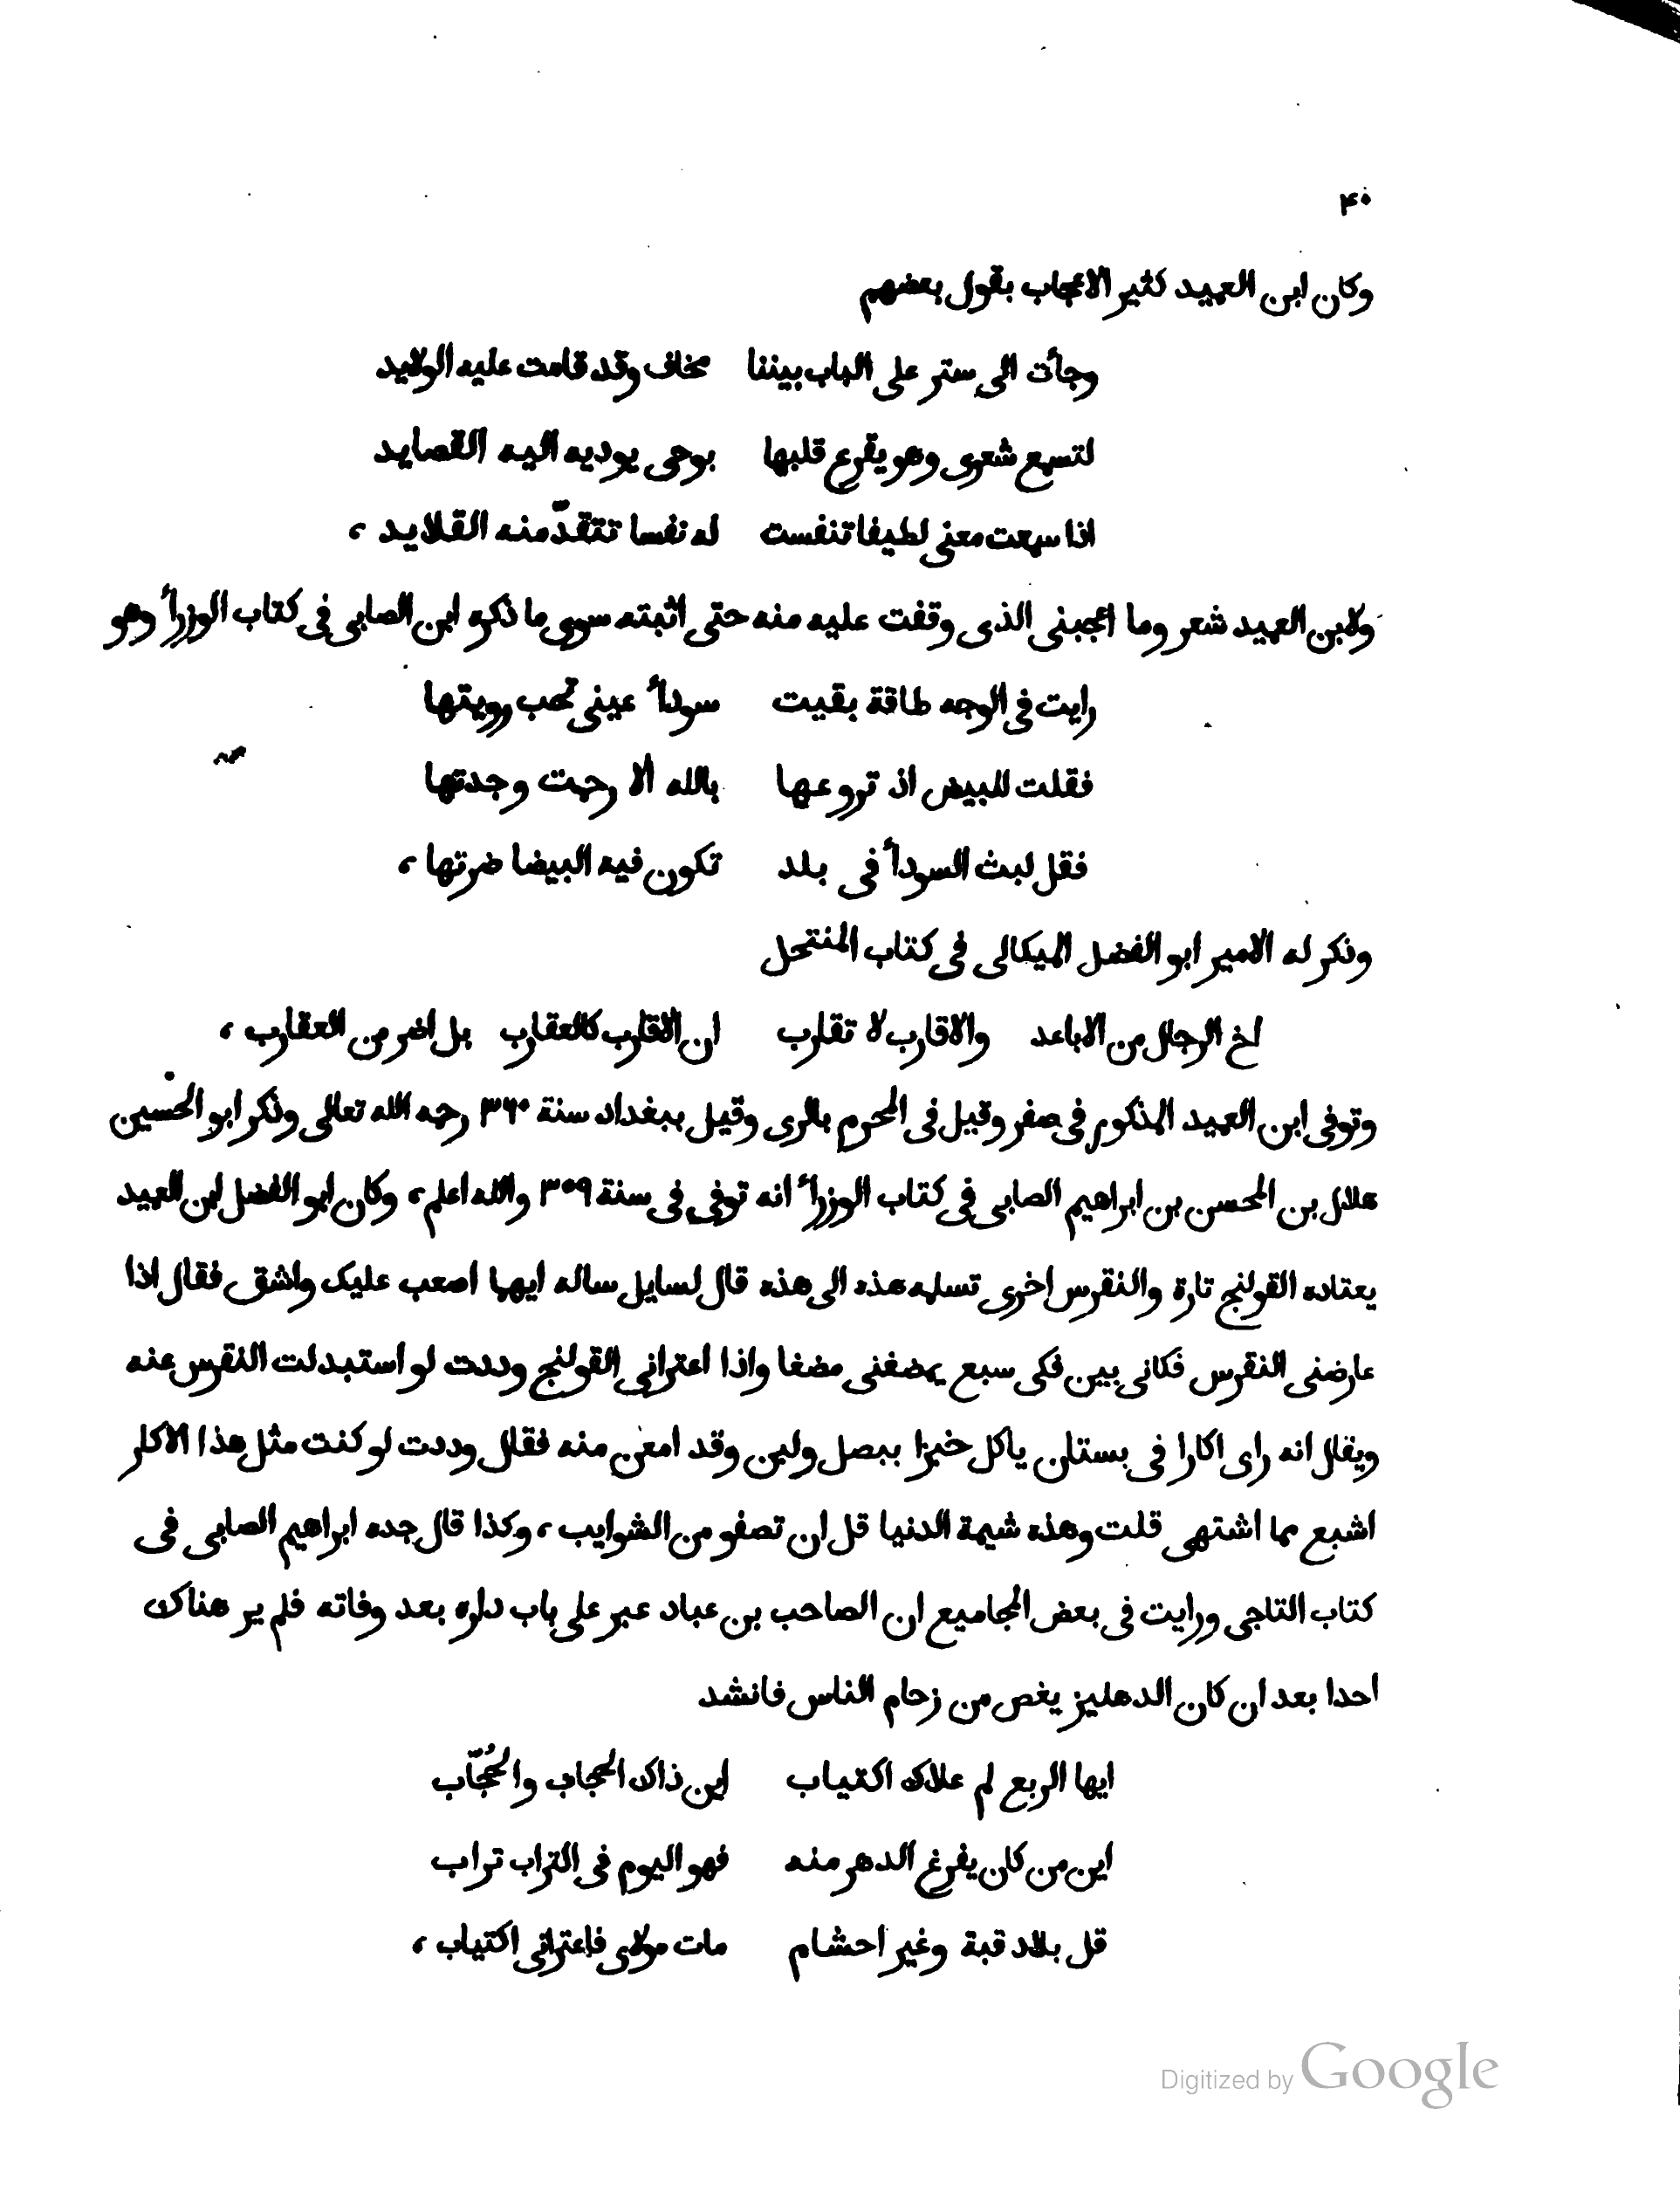 ۴۰
وكان ابن العميد كثير الاعجاب بقول بعضهم
وجأت الى ستر على الباب بيننا مخاف وقد قامت عليه الولايد
لتسمع شعرى وهو يقرع قلبها بوحى يوديه اليه القصايد
اذا سمعت معنى لطيفا تنفست له نفسا تتقدّ منه القلايد ،
ولابن العميد شعر وما اعجبنى الذى وقفت عليه منه حتى اثبته سوى ما ذكره ابن الصابى فى كتاب الوزرأ وهو
رايت فى الوجه طاقة بقيت سودأ عينى تحب رويتها
فقلت للبيض اذ تروعها بالله الا رحمت وجدتها
فقل لبث السودأ فى بلد تكون فيه البيضا ضرتها ،
وذكر له الامير ابو الفضل الميكالى فى كتاب المنتحل
اخ الرجال من الاباعد والاقارب لا تقارب ان الاقارب كالعقارب بل اضر من العقارب ،
وتوفى ابن العميد المذكور فى صفر وقيل فى المحرم بالرى وقيل ببغداد سنة ۳۶۰ رحمه الله تعالى وذكر ابو الحسين
هلال بن المحسن بن ابراهيم الصابى فى كتاب الوزرأ انه توفى فى سنة ۳۵۹ والله اعلم ، وكان ابو الفضل ابن العميد
يعتاده القولنج تارة والنقرس اخرى تسلمه هذه الى هذه قال لسايل ساله ايهما اصعب عليك واشق فقال اذا
عارضنى النقرس فكانى بين فكى سبع يمضغنى مضغا واذا اعترانى القولنج وددت لو استبدلت النقرس عنه
ويقال انه راى اكارا فى بستان ياكل خبزا ببصل ولبن وقد امعن منه فقال وددت لو كنت مثل هذا الاكار
اشبع مما اشتهى قلت وهذه شيمة الدنيا قل ان تصفو من الشوايب ، وكذا قال جده ابراهيم الصابى فى
كتاب التاجى ورايت فى بعض المجاميع ان الصاحب بن عباد عبر على باب داره بعد وفاته فلم ير هناك
احدا بعد ان كان الدهليز يغص من زحام الناس فانشد
ايها الربع لم علاك اكتياب اين ذاك الحجاب والحُجّاب
اين من كان يفرغ الدهر منه فهو اليوم فى التراب تراب
قل بلاد قبة وغير احشام مات مولاى فاعترانى اكتياب ،
Digitized by Google